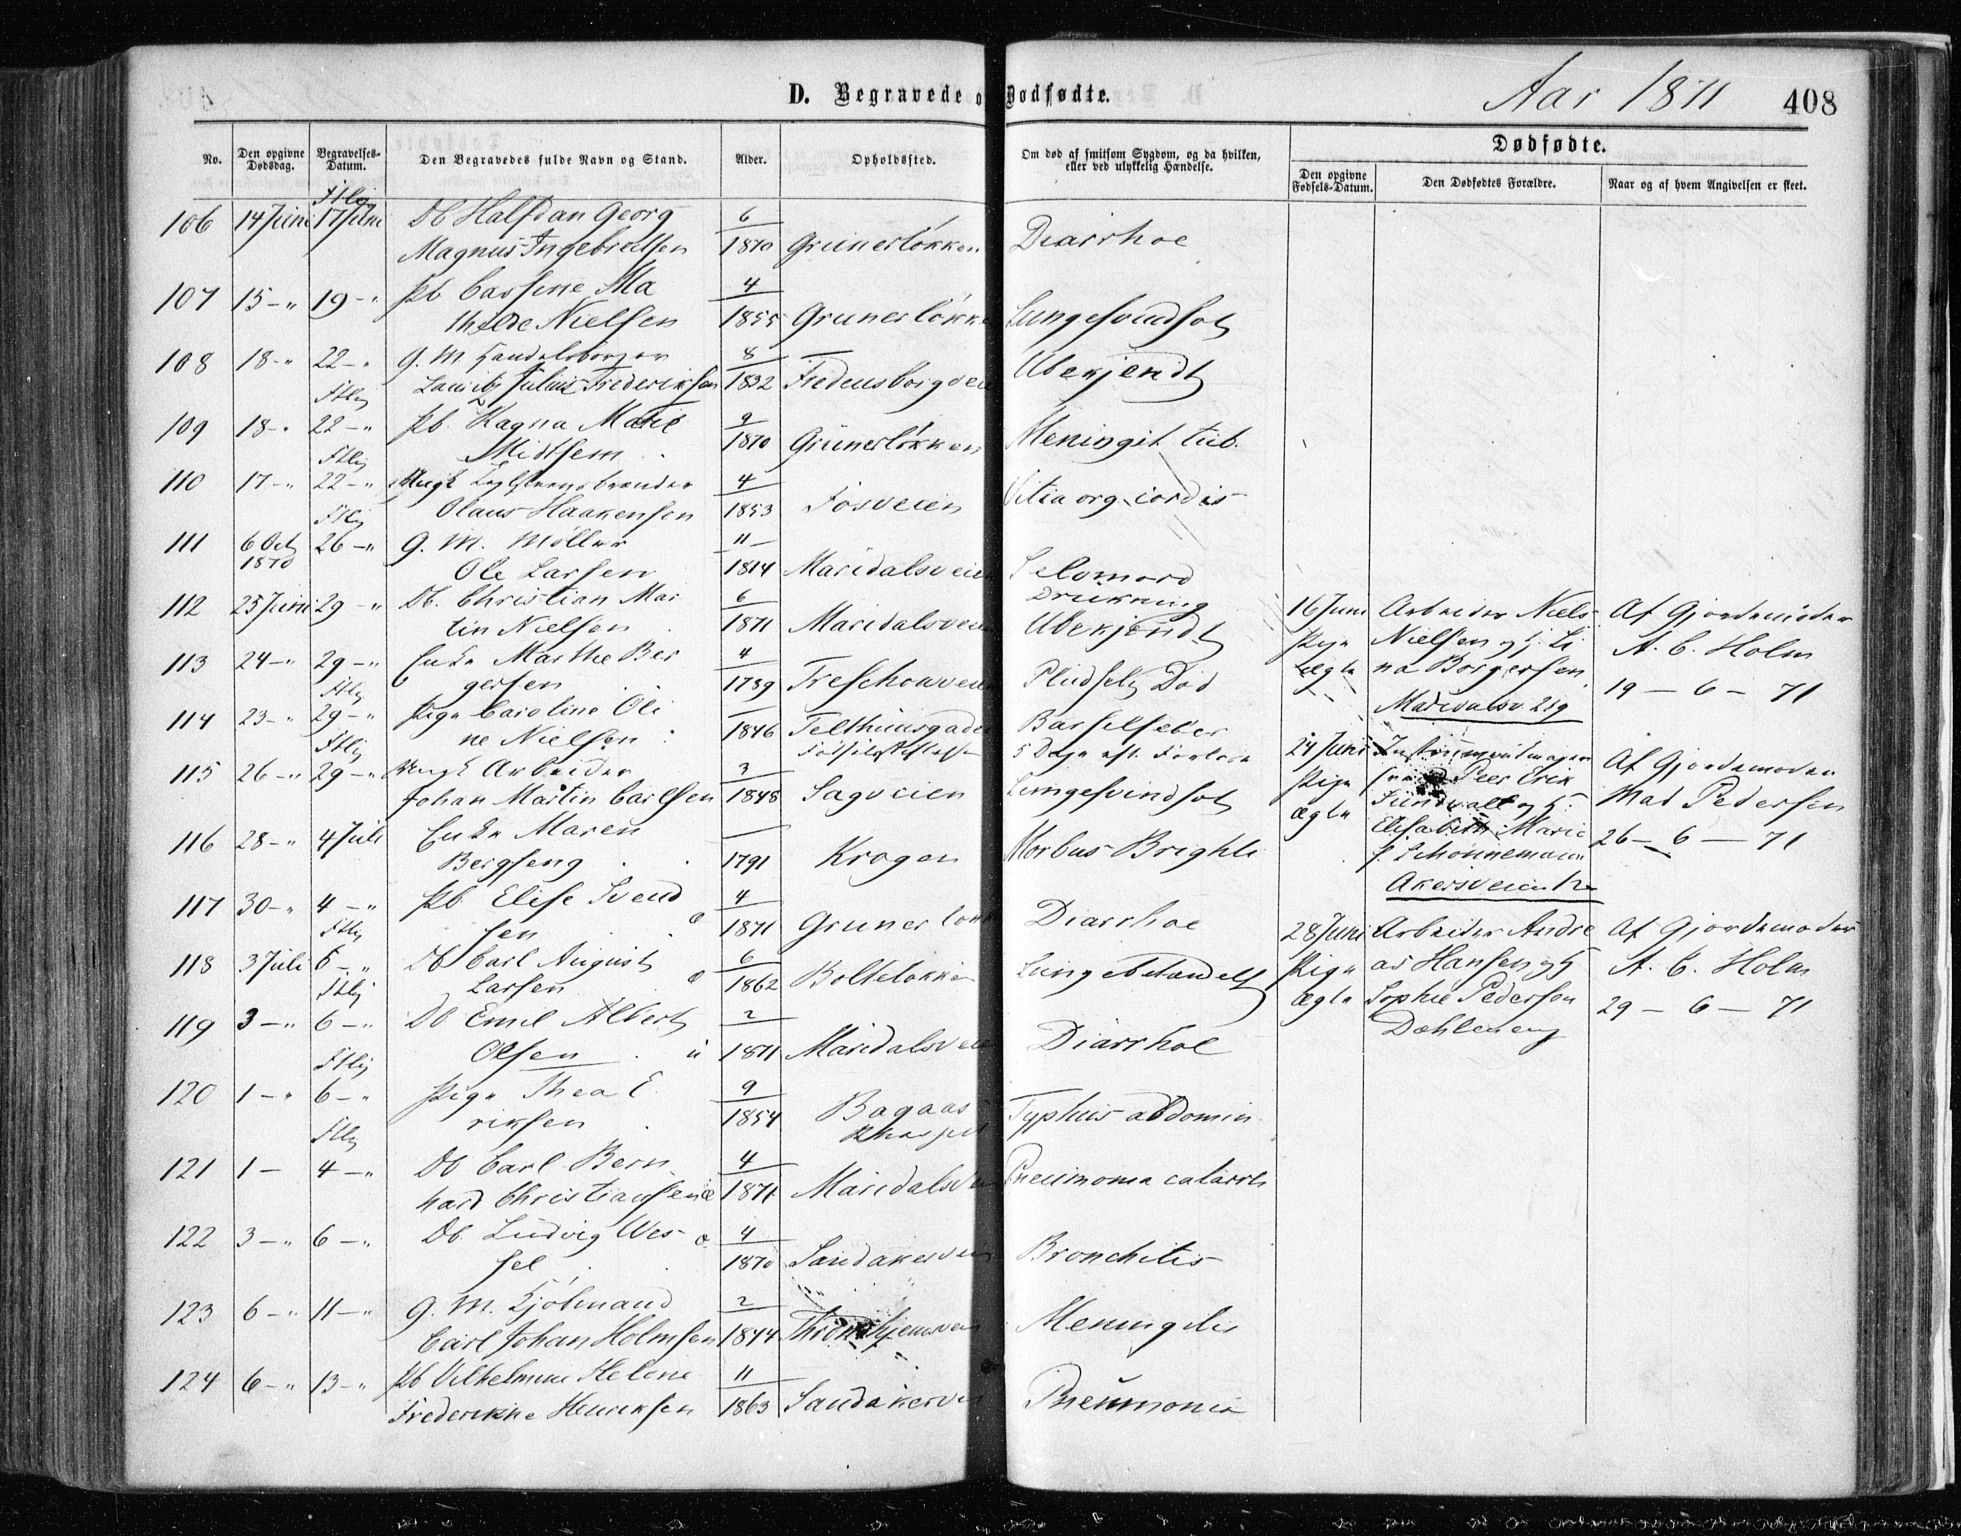 D. Begravede o Dødfødte.
Aar 1871
408
No.
Den opgivne Dødsdag.
Begravelses-Datum.
Den Begravedes fulde Navn og Stand.
Alder.
Opholdssted.
Om død af smitsom Sygdom, og da hvilken, eller ved ulykkelig Hændelse.
Dødfødte.
Den opgivne Fødsels-Datum.
Den Dødfødtes Forældre.
Naar og af hvem Angivelsen er skeet.
106 14 Juni 17 Juni Db Halfdan Georg 6
Magnus Ingebretsen 1870 Grünerløkken Diarrhoe
107 15 - " 19 - " Pb Ma 4
thilde Nielsen 1855 Grunerløkke Lungesvindsot
108 18 - " 22 - " G. M. Handelsborger 8
Julius Frederiksen 1832 Fredensborgveie Ubekjendt
109 18 - " 22 - " Pb. Ragna Marie 9
Midtsem 1870 Grünerløkken Meningit tub.
110 17 - " 22 - " Ungk 4
Olaus Haakensen 1853 Fosveien Vitia org. cordis
111 6 Oct 1870 26 - " G. M. Møller 11
Ole Larsen 1814 Maridalsveien Selvmord
Drukning
112 25 Juni 29 - " Db. Christian Mar 6
tin Nielsen 1871 Maridalsveie Ubekjendt
113 24 - " 29 - " Enke Marthe Ber 4
gersen 1789 Treschowveien Pludselig Død
114 23 - " 29 - " Pige Caroline Oli
ne Nielsen 1846 Telthusgade Barselfeber
5 Dage eft. Forløsn
115 26 - " 29 - " Ungk Arbeider 3
Johan Martin Carlsen 1848 Sagveien Lungesvindsot
116 28 - " 4 Juli Enke Maren
Bergseng 1791 Krogen Morbus Brighti
117 30 - " 4 - " Pb Elise Svend 4
sen 1871 Gruner løkk Diarrhoe
118 3 Juli 6 - " Db Carl August 6
Larsen 1862 Bolteløkken Lungebetændelse
119 3 - " 6 - " Db Emil Albert 2
Olsen 1871 Maridalsveie Diarrhoe
120 1 - " 6 - " Pige Thea E 9
riksen 1854 Bagaas Typhus abdomin
121 1 - 4 - " Db Carl Bern 4
hard Christiansen 1871 Maridalsvei Pneumonia catarrh
122 3 - " 6 - " Db. Ludvig Wes 4
sel 1870 Sandakerveie Bronchitis
123 6 - " 11 - " G. M. Kjøbmand 2
Carl Johan Holmsen 1844 Throndhjemsvei Meningitis
124 6 - " 13 - " Pb Vilhelmine Helene 11
Frederikke Henriksen 1863 Sandakervei Pneumonia
16 Juni Arbeider Niels Af Gjordemoder
Pige Nielsen og H. Li A. C. Holm
ægte na Borgersen. 19 - 6 - 71
Maridalsv 219
24 Juni Instrumentmager Af Gjordemoder
Pige Peer Erik Mad Pedersen
ægte Sundvall og H.
Elisabeth Marie 26 - 6 - 71
f. Schønnemann
Akersveien 12
28 Juni Arbeider Andre Af Gjordemoder
Pige as Hansen og H A. C. Holm
ægte Sophie Pedersen 29 - 6 - 71
Dæhleneng